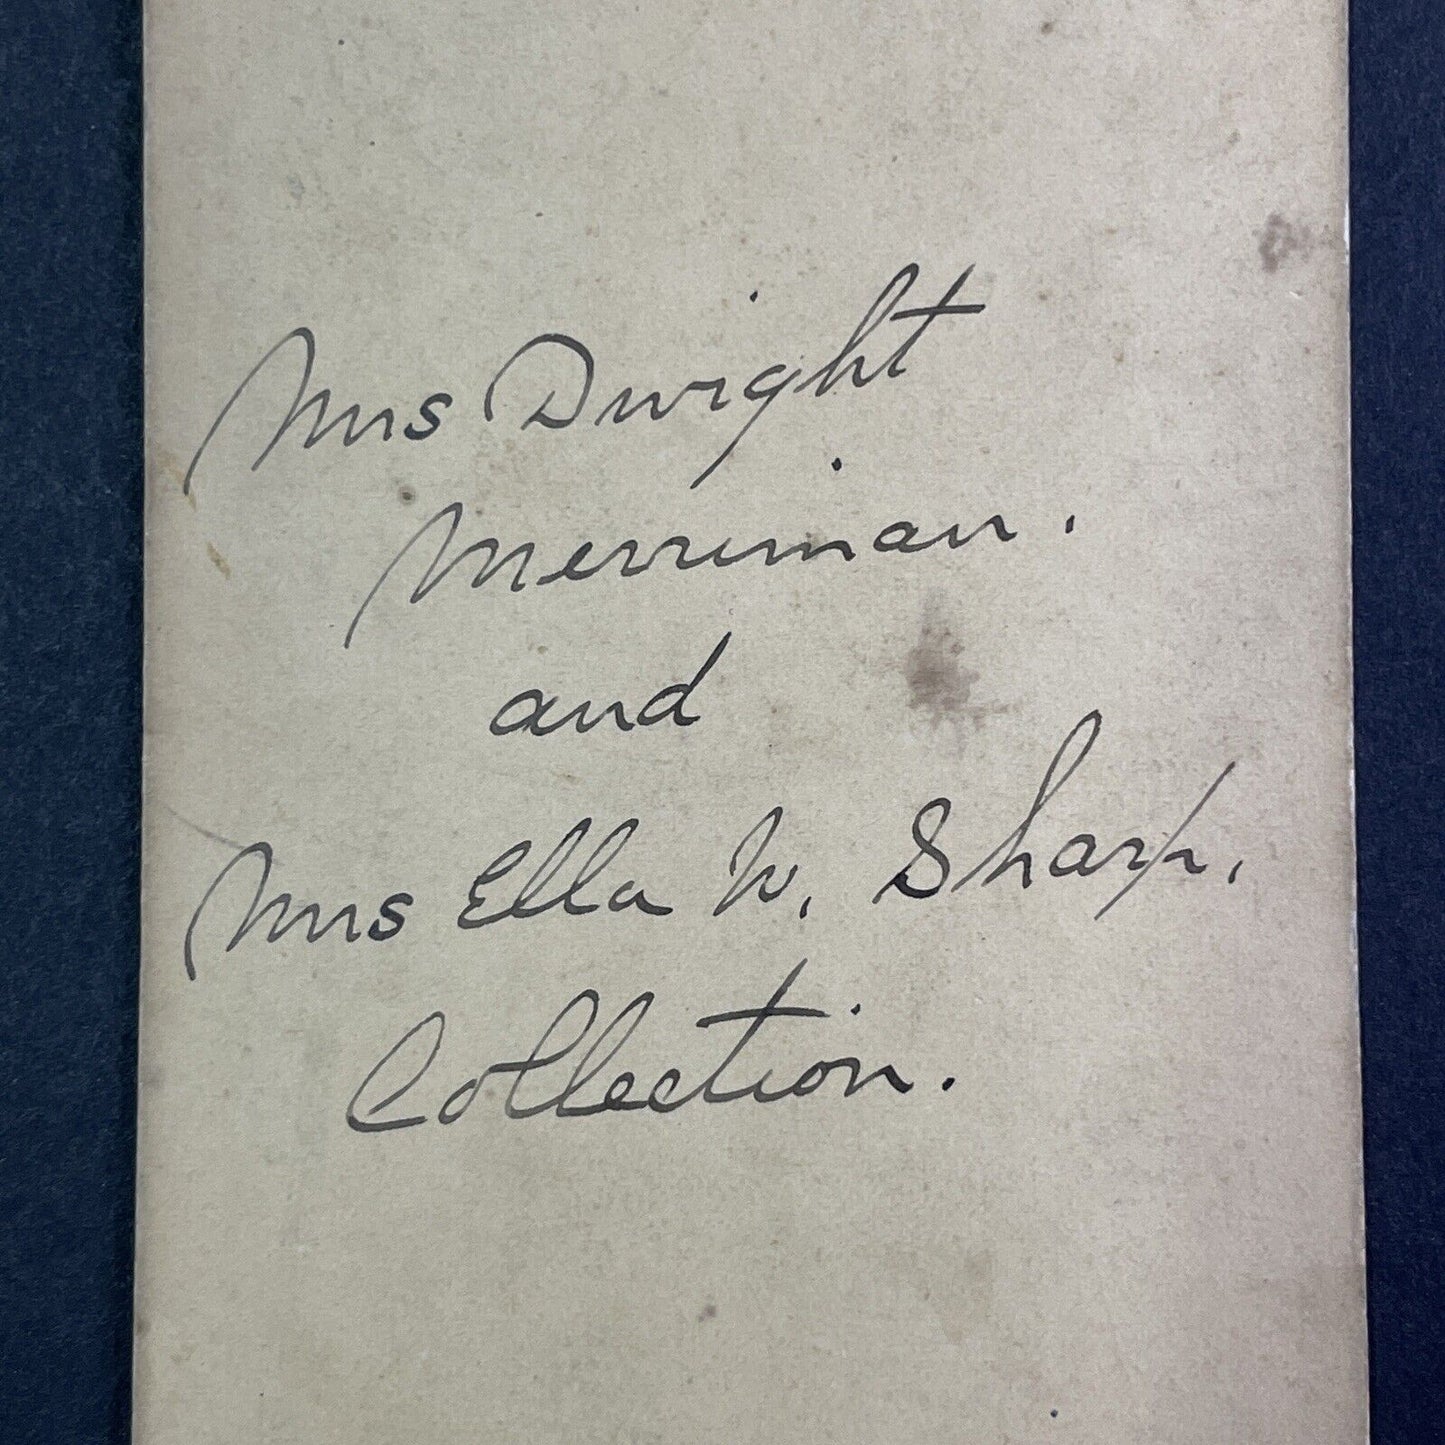 Mrs Dwight
Merriman.
and
Mrs Ella W. Sharp,
Collection.